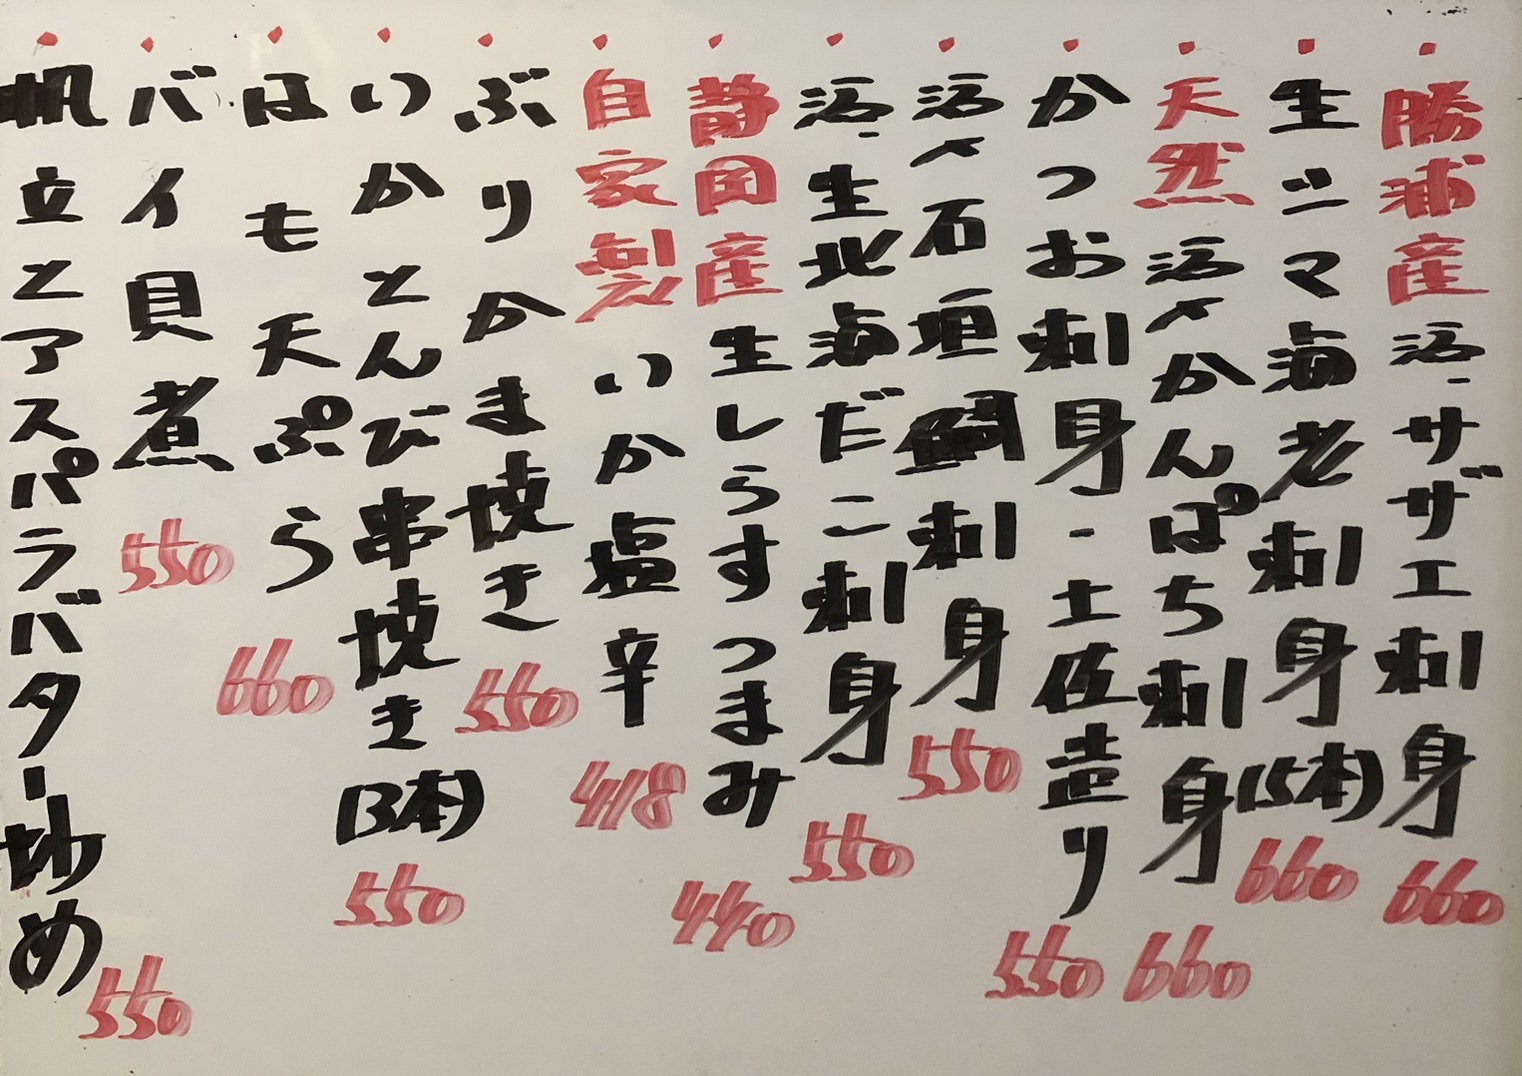 勝浦産活〆サザエ刺身 660
生シマ海老刺身(5本) 660
天然活〆かんぱち刺身 660
かつお刺身・土佐造り 550
活〆石垣鯛刺身 550
活〆生北海だこ刺身 550
静岡産生しらすつまみ 440
自家製いか塩辛 418
ぶりかま焼き 550
いかとんび串焼き(3本) 550
はも天ぷら 660
バイ貝煮 550
帆立とアスパラバター炒め 550